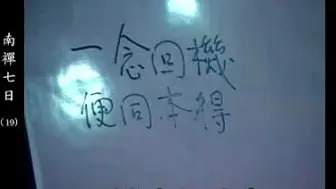 南禪七日
(19)
一念回機
便同本得